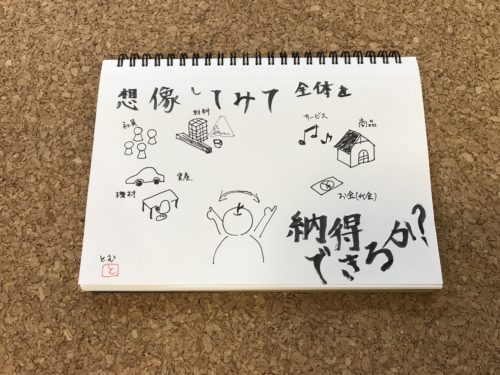 想像してみて 全体を
社員
材料
サービス
商品
資産
機材
お金(代金)
納得
できるか?
とむ
と